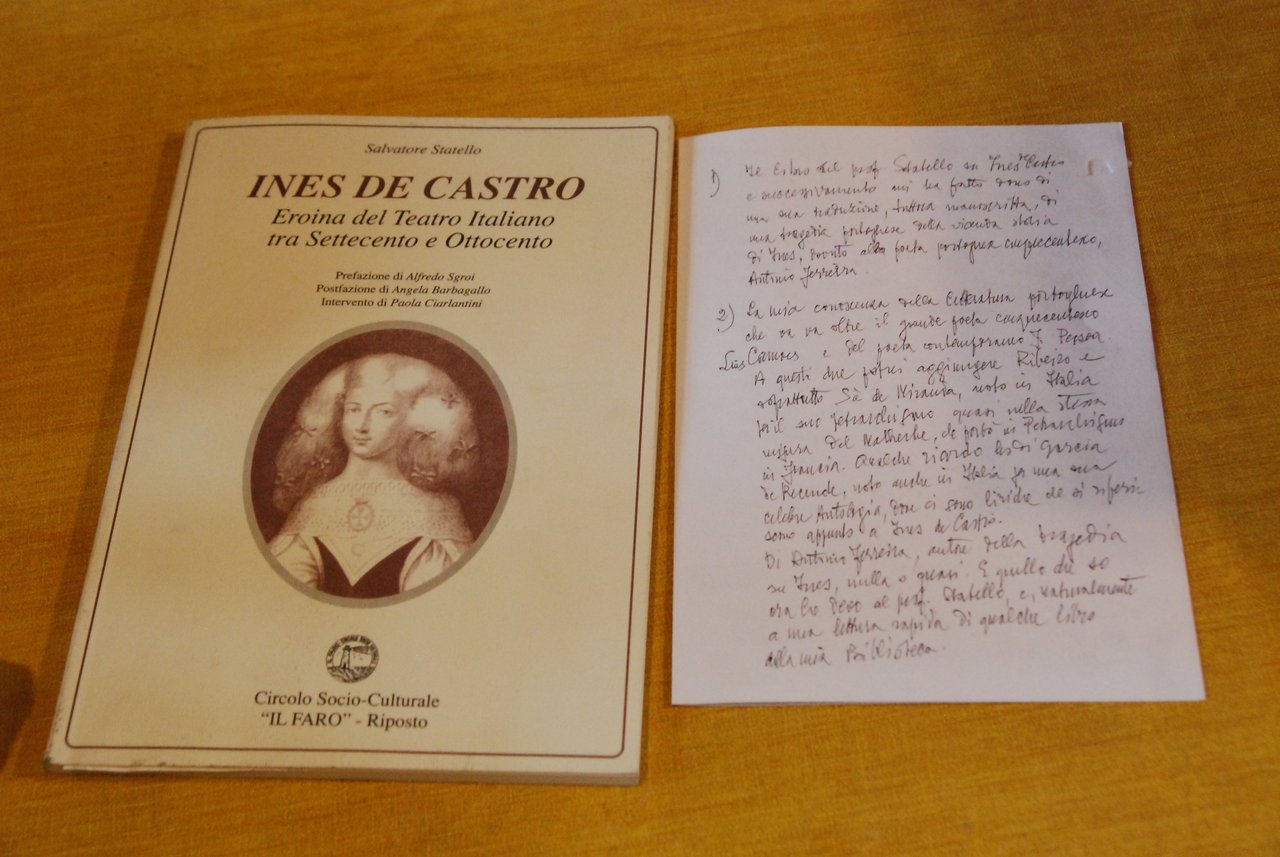 Salvatore Statello
INES DE CASTRO
Eroina del Teatro Italiano
tra Settecento e Ottocento
Prefazione di Alfredo Sgroi
Postfazione di Angela Barbagallo
Intervento di Paola Ciarlantini
Circolo Socio-Culturale
“IL FARO” - Riposto
1) Il libro del prof Statello su Ines de Castro
e successivamente mi ha fatto dono di
una sua traduzione, tuttora manoscritta, di
una tragedia portoghese della vicenda storia
di Ines, dovuta alla poeta portoghese cinquecentesco,
Antonio Ferreira.
2) La mia conoscenza della letteratura portoghese
che va oltre il grande poeta cinquecentesco
Luis Camoes e del poeta contemporaneo F. Pessoa.
A questi due potrei aggiungere Ribeiro e
soprattutto Sà de Miranda, noto in Italia
per il suo petrarchismo quasi nella stessa
misura del Malherbe, che portò in Petrarchismo
in Francia. Qualche ricordo di Garcia
de Resende, noto anche in Italia per una sua
celebre Antologia, dove ci sono liriche che si riferi-
scono appunto a Ines de Castro.
Di Antonio Ferreira, autore della tragedia
su Ines, nulla o quasi. E quello che so
ora lo devo al prof. Statello, e, naturalmente
a mia lettura rapida di qualche libro
della mia Biblioteca.